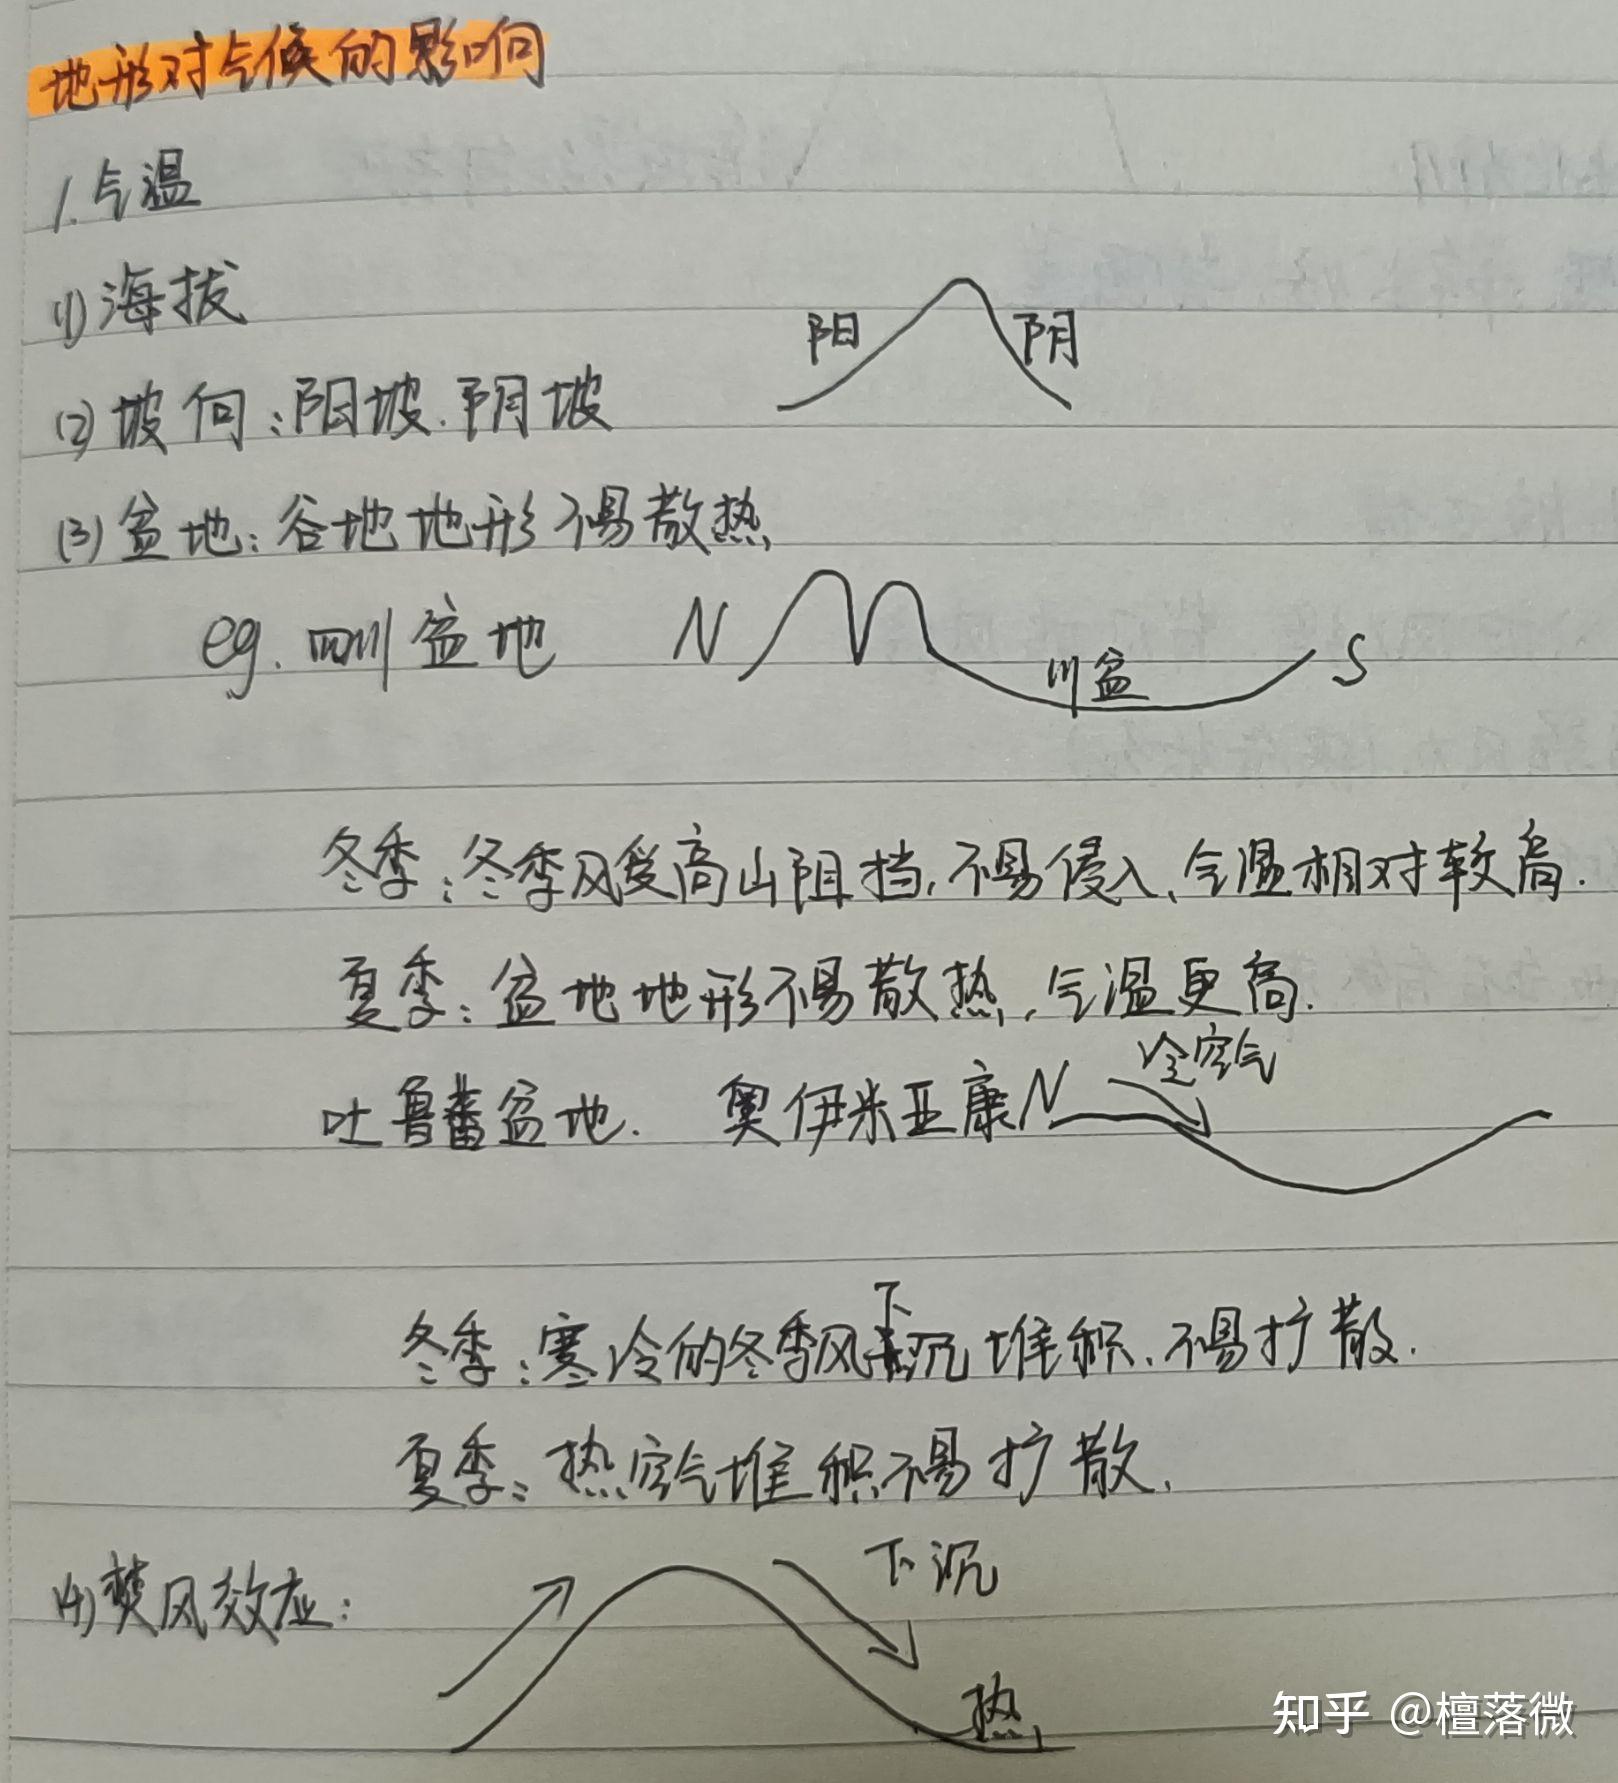 地形对气候的影响
1.气温
(1)海拔
阳 阴
(2)坡向:阳坡.阴坡
(3)盆地:谷地地形不易散热
eg.四川盆地 N 川盆 S
冬季:冬季风受高山阻挡,不易侵入,气温相对较高.
夏季:盆地地形不易散热,气温更高.
冷空气
吐鲁番盆地. 奥伊米亚康 N
冬季:寒冷的冬季风下沉堆积、不易扩散.
夏季:热空气堆积不易扩散.
下沉
(4)焚风效应:
热
知乎 @檀落微